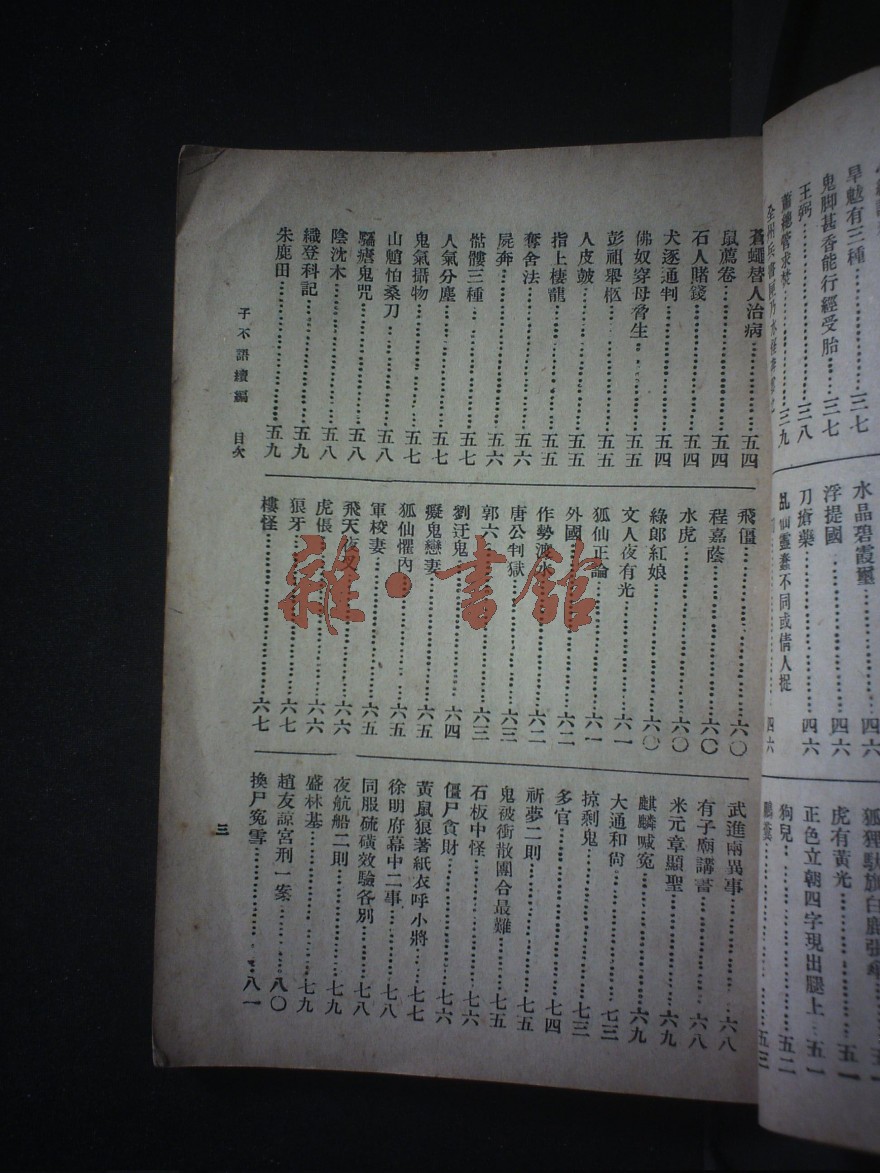 旱魃有三種……三七
鬼脚甚香能行經受胎……三七
王弼……三八
蕭總管求救……三九
水晶碧霞璽……四六
浮提國……四六
刀瘡藥……四六
乩仙靈蠢不同或倩人捉……四六
虎有黃光……五一
正色立朝四字現出腿上……五一
狗兒……五二
鵬糞……五三
蒼蠅替人治病……五四
鼠薦卷……五四
石人賭錢……五四
犬逐通判……五四
佛奴穿母脅生……五五
彭祖舉柩……五五
人皮皷……五五
指上棲龍……五五
奪舍法……五六
屍奔……五六
骷髏三種……五七
人氣分塵……五七
鬼氣攝物……五七
山魈怕桑刀……五八
驅瘧鬼咒……五八
陰沈木……五八
織登科記……五九
朱鹿田……五九
飛僵……六〇
程嘉蔭……六〇
水虎……六〇
綠郎紅娘……六〇
文人夜有光……六一
狐仙正論……六一
外國……六二
作勢潑水……六二
唐公判獄……六三
郭六……六三
劉迂鬼……六四
癡鬼戀妻……六五
狐仙懼內……六五
軍校妻……六五
飛天夜叉……六六
虎倀……六六
狼牙……六七
樓怪……六七
武進兩異事……六八
有子廟講書……六八
米元章顯聖……六九
麒麟喊冤……六九
大通和尙……七三
掠剩鬼……七三
多官……七四
祈夢二則……七五
鬼被衝散團合最難……七五
石板中怪……七六
僵尸貪財……七六
黃鼠狼著紙衣呼小將……七七
徐明府幕中二事……七八
同服硫磺效驗各別……七八
夜航船二則……七九
盛林基……七九
趙友諒宮刑一案……八〇
換尸冤雪……八一
子不語續編 目次
三
雜·書館